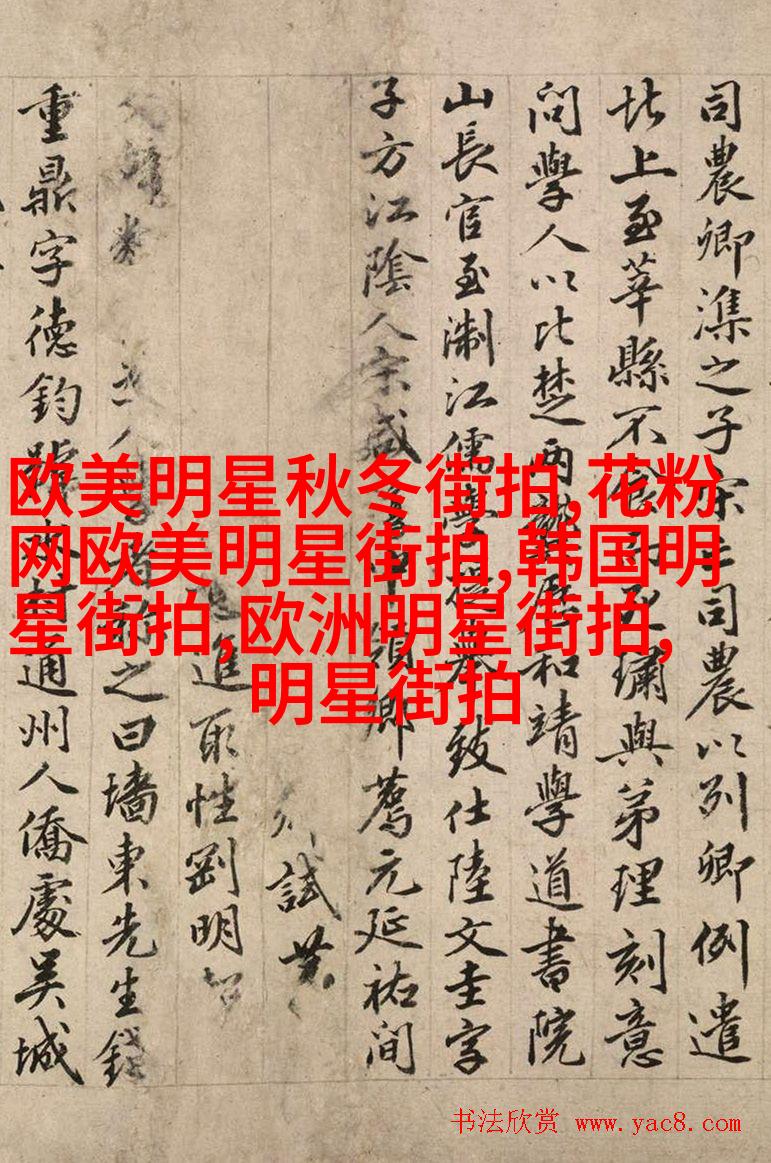 司農卿潗之子宋亡司農以列卿例遣
北上至莘縣不食而死璛與弟理刻意
問學人以比楚兩龔歷和靖學道書院
山長官至淛江儒學提舉致仕陸文圭字
子方江陰人宋咸淳中領鄉薦元延祐間
試
進取性剛明
人之曰墻東先生錢
重鼎字德鈞號水村通州人僑處吳城
欧美明星秋冬街拍,花粉
网欧美明星街拍,韩国明
星街拍,欧洲明星街拍,
明星街拍
书法欣赏 www.yac8.com